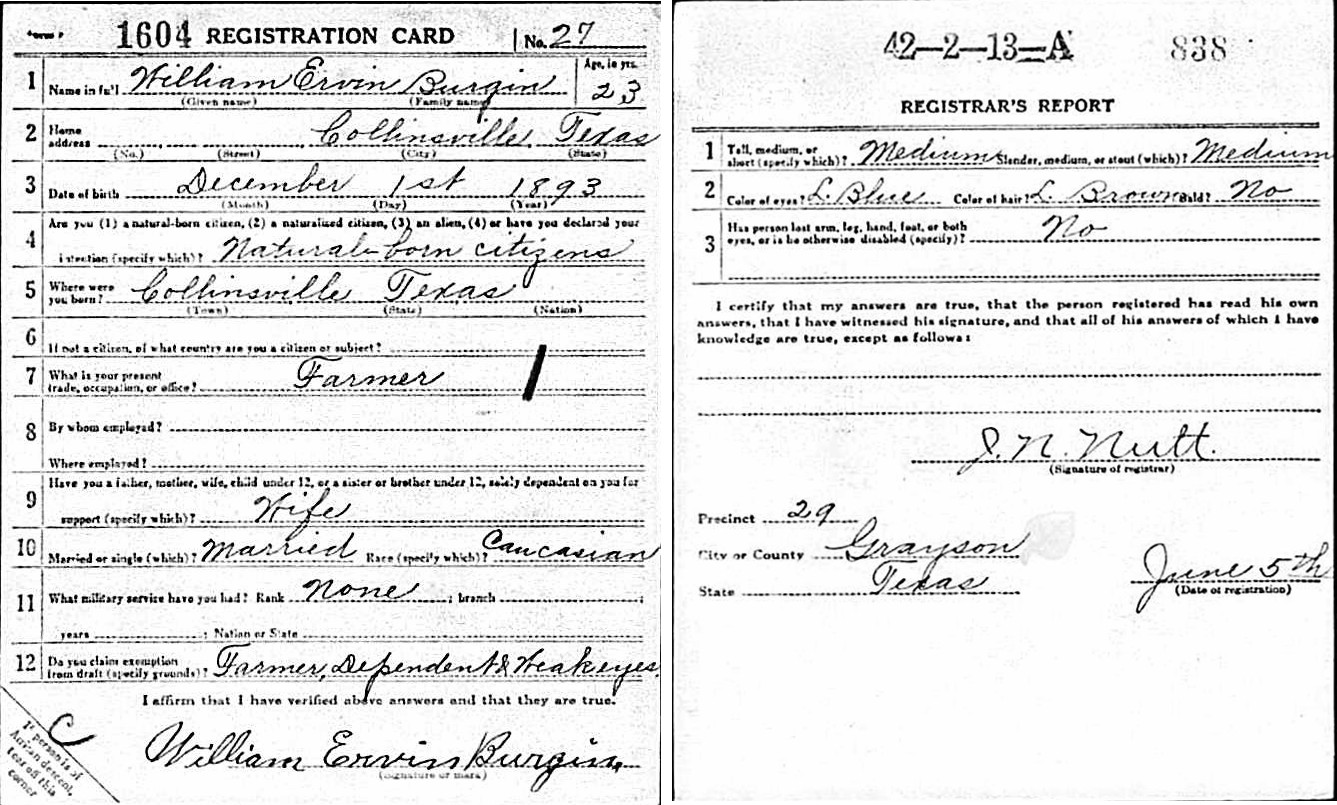 Form 1 1604 REGISTRATION CARD No. 27
1 Name in full William Ervin Burgin Age, in yrs. 23
(Given name) (Family name)
2 Home address Collinsville Texas
(No.) (Street) (City) (State)
3 Date of birth December 1st 1893
(Month) (Day) (Year)
4 Are you (1) a natural-born citizen, (2) a naturalized citizen, (3) an alien, (4) or have you declared your
intention (specify which)? Natural-born citizens
5 Where were you born? Collinsville Texas
(Town) (State) (Nation)
6 If not a citizen, of what country are you a citizen or subject?
7 What is your present trade, occupation, or office? Farmer
8 By whom employed?
Where employed?
9 Have you a father, mother, wife, child under 12, or a sister or brother under 12, solely dependent on you for
support (specify which)? Wife
10 Married or single (which)? Married Race (specify which)? Caucasian
11 What military service have you had? Rank None ; branch ;
years ; Nation or State
12 Do you claim exemption from draft (specify grounds)? Farmer, Dependent & Weak eyes.
I affirm that I have verified above answers and that they are true.
C
William Ervin Burgin,
(Signature or mark)
If person is of
African descent,
tear off this
corner
42-2-13-A 838
REGISTRAR'S REPORT
1 Tall, medium, or short (specify which)? Medium Slender, medium, or stout (which)? Medium
2 Color of eyes? L. Blue Color of hair? L. Brown Bald? No
3 Has person lost arm, leg, hand, foot, or both
eyes, or is he otherwise disabled (specify)? No
I certify that my answers are true, that the person registered has read his own
answers, that I have witnessed his signature, and that all of his answers of which I have
knowledge are true, except as follows:
J. N. Nutt.
(Signature of registrar)
Precinct 29
City or County Grayson
State Texas
June 5th
(Date of registration)